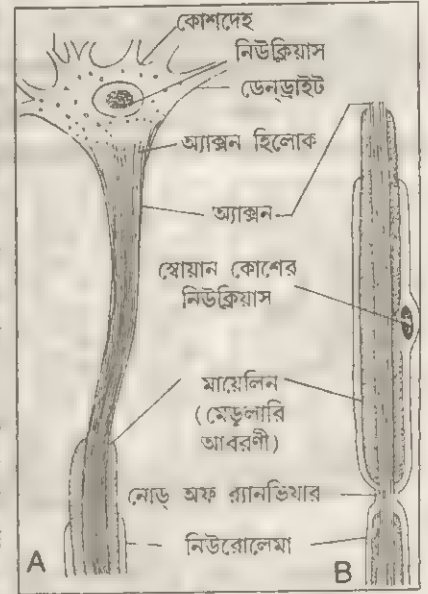 কোশদেহ
নিউক্লিয়াস
ডেনড্রাইট
অ্যাক্সন হিলোক
অ্যাক্সন
স্বোয়ান কোশের
নিউক্লিয়াস
মায়েলিন
(মেডুলারি
আবরণী)
নোড্ অফ র‍্যানভিয়ার
নিউরোলেমা
A
B